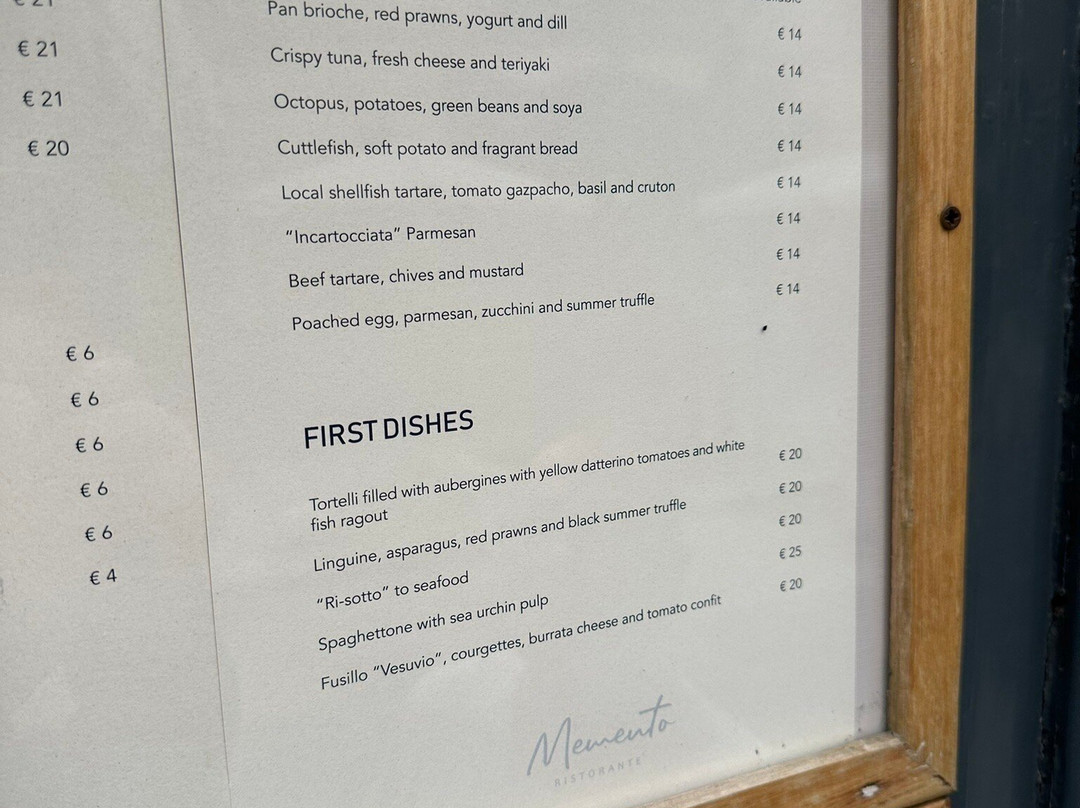 € 21
€ 21
€ 21
€ 20
€ 6
€ 6
€ 6
€ 6
€ 6
€ 4
Pan brioche, red prawns, yogurt and dill € 14
Crispy tuna, fresh cheese and teriyaki € 14
Octopus, potatoes, green beans and soya € 14
Cuttlefish, soft potato and fragrant bread € 14
Local shellfish tartare, tomato gazpacho, basil and cruton € 14
“Incartocciata” Parmesan € 14
Beef tartare, chives and mustard € 14
Poached egg, parmesan, zucchini and summer truffle € 14
FIRST DISHES
Tortelli filled with aubergines with yellow datterino tomatoes and white € 20
fish ragout
Linguine, asparagus, red prawns and black summer truffle € 20
“Ri-sotto” to seafood € 20
Spaghettone with sea urchin pulp € 25
Fusillo “Vesuvio”, courgettes, burrata cheese and tomato confit € 20
Memento
RISTORANTE